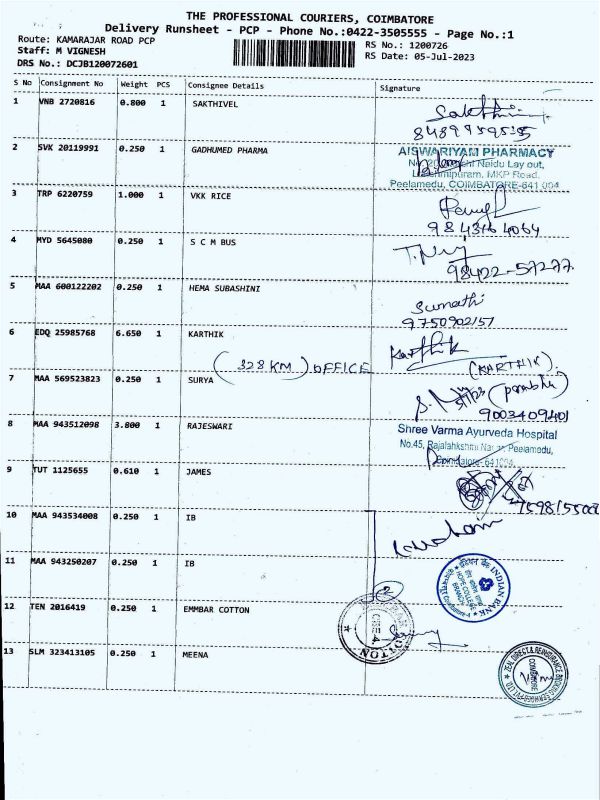 THE PROFESSIONAL COURIERS, COIMBATORE
Delivery Runsheet - PCP - Phone No.:0422-3505555 - Page No.:1
Route: KAMARAJAR ROAD PCP
RS No.: 1200726
Staff: M VIGNESH
RS Date: 05-Jul-2023
DRS No.: DCJB120072601
S No Consignment No Weight PCS Consignee Details Signature
1 VNB 2720816 0.800 1 SAKTHIVEL
2 SVK 20119991 0.250 1 GADHUMED PHARMA
AISWARIYAM PHARMACY
Naidu Lay out,
MKP Road,
Peelamedu, COIMBATORE-641 004
3 TRP 6220759 1.000 1 VKK RICE
4 MYD 5645080 0.250 1 S C M BUS
98422-57277
5 MAA 600122202 0.250 1 HEMA SUBASHINI
Sumathi
9750902157
6 EDQ 25985768 6.650 1 KARTHIK
Karthik
(KARTHIK).
(328 KM) OFFICE
7 MAA 569523823 0.250 1 SURYA
9003409401
8 MAA 943512098 3.800 1 RAJESWARI
Shree Varma Ayurveda Hospital
No.45, Rajalakshmi Peelamedu,
Coimbatore-641004.
9 TUT 1125655 0.610 1 JAMES
10 MAA 943534008 0.250 1 IB
11 MAA 943250207 0.250 1 IB
INDIAN BANK
HOPE COLLEGE
BRANCH
12 TEN 2016419 0.250 1 EMMBAR COTTON
13 SLM 323413105 0.250 1 MEENA
COIMBATORE